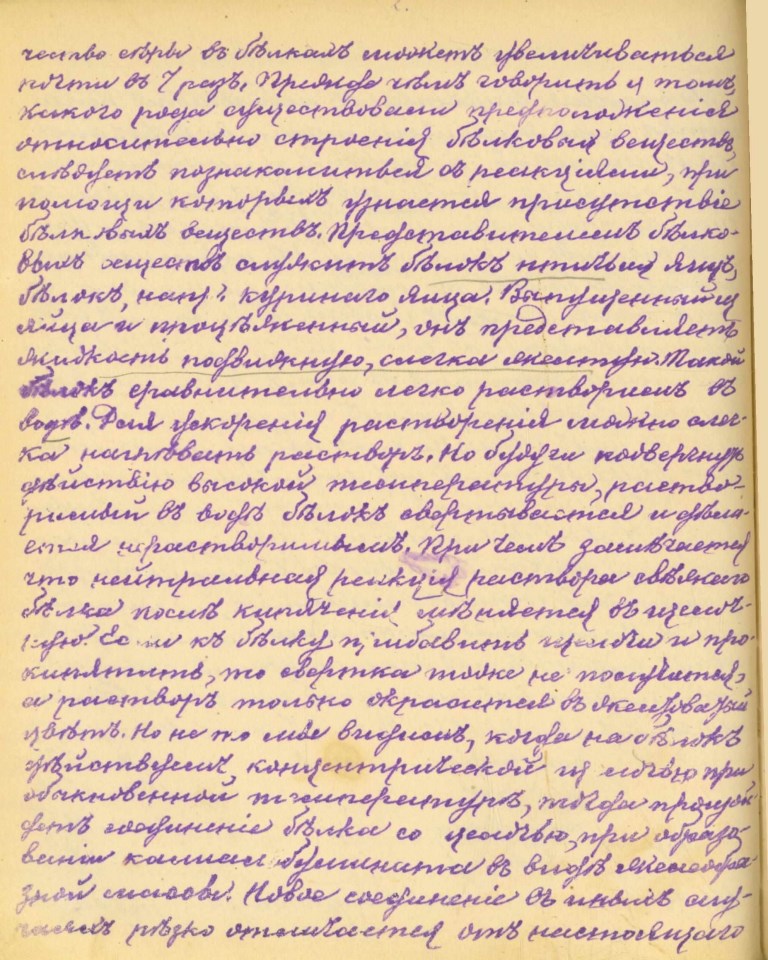 чество сѣры въ бѣлкахъ можетъ увеличиваться
почти въ 7 разъ. Прежде чѣмъ говорить о томъ,
какого рода существовали предположенія
относительно строенія бѣлковыхъ веществъ,
слѣдуетъ познакомиться съ реакціями, при
помощи которыхъ узнается присутствіе
бѣлковыхъ веществъ. Представителемъ бѣлко-
выхъ веществъ служитъ бѣлокъ птичьихъ яицъ,
бѣлокъ, напр. куринаго яица. Выпущенный из
яйца и процѣженный, онъ представляетъ
жидкость подвижную, слегка желтую. Такой
бѣлокъ сравнительно легко растворимъ въ
водѣ. Для ускоренія растворенія можно слег-
ка нагрѣвать растворъ. Но будучи подвергнутъ
дѣйствію высокой температуры, раство-
римый въ водѣ бѣлокъ свертывается и дѣла-
ется нерастворимымъ. При чемъ замѣчается
что нейтральная реакція раствора свѣжаго
бѣлка послѣ кипяченія мѣняется въ щелоч-
ную. Если къ бѣлку прибавить щелочи и про-
кипятить, то свертка тоже не получится,
а растворъ только окрасится въ желтоватый
цвѣтъ. Но не то мы видимъ, когда на бѣлокъ
дѣйствуемъ концентрической щелочью при
обыкновенной температурѣ, тогда произой-
детъ соединеніе бѣлка со щелочью, при образо-
ваніи калиальбумината въ видѣ желеобра-
зной массы. Новое соединеніе въ иныхъ слу-
чаяхъ рѣзко отличается отъ настоящаго